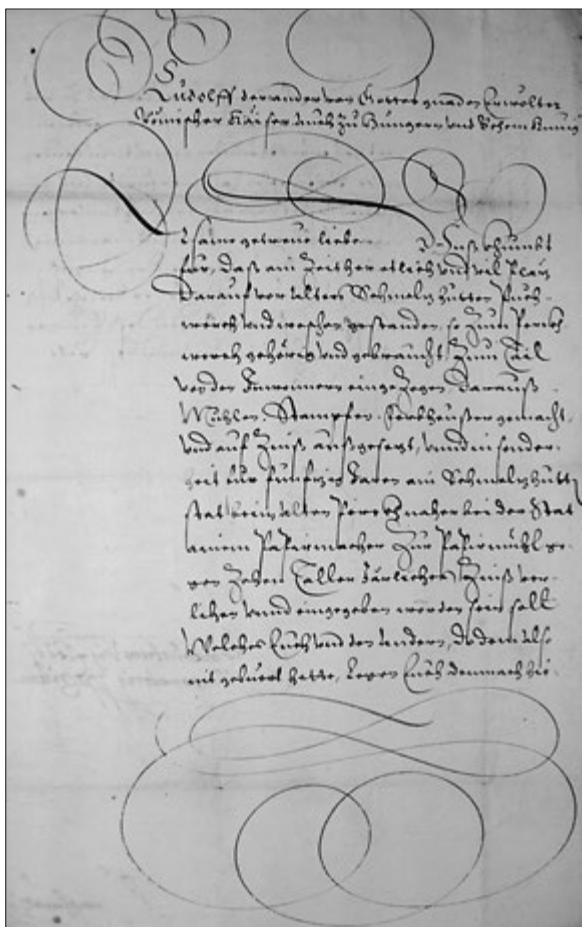 Rudolff der ander von Gottes gnaden Erwölter
Römischer Kaiser auch zu Hungern und Behem Kunig
Ersame getreue liebe. Unß khumbt
für, daß ain Zeit her etlich und vil Pläz
Darauf vor alters Schmelzhütten Puch-
werch und waschen gestanden, so zum Perk-
werch gehörig und gebraucht, zum Tail
von den Inwonern eingezogen, darauß
Mühlen, Stampfen, heußer gemacht,
und auf Zinß außgesezt, unnd in sonder-
heit vur funfzig Jaren ain Schmelzhütt-
stat beim alten Perkh naher bei der Stat
ainem Papirmacher zur Papirmühl ge-
gen Zehen Taller Järlichen Zinß ver-
lihen unnd eingegeben worden sein soll
Welches Euch und den andern, do dem also
nit gebuert hette, Legen Euch demnach hie-